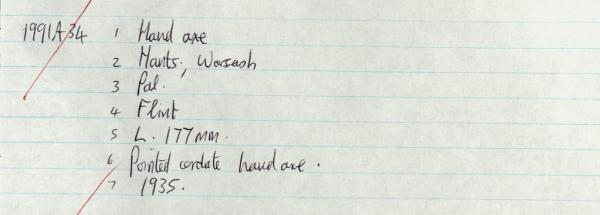 1991A34 1 Hand axe
2 Hants., Warsash
3 Pal.
4 Flint
5 L. 177mm.
6 Pointed cordate handaxe.
7 1935.